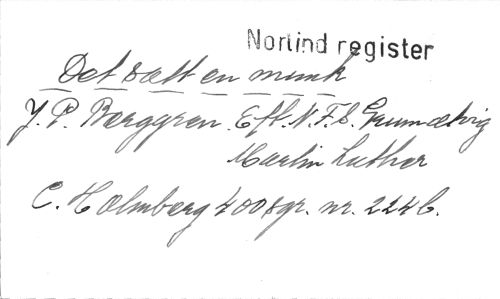 Nortind register
Det satt en munk
J. P. Berggren. Eft. N. F. S. Grundtvig
Martin Luther
C. Holmberg 4008gr. nr. 224 b.